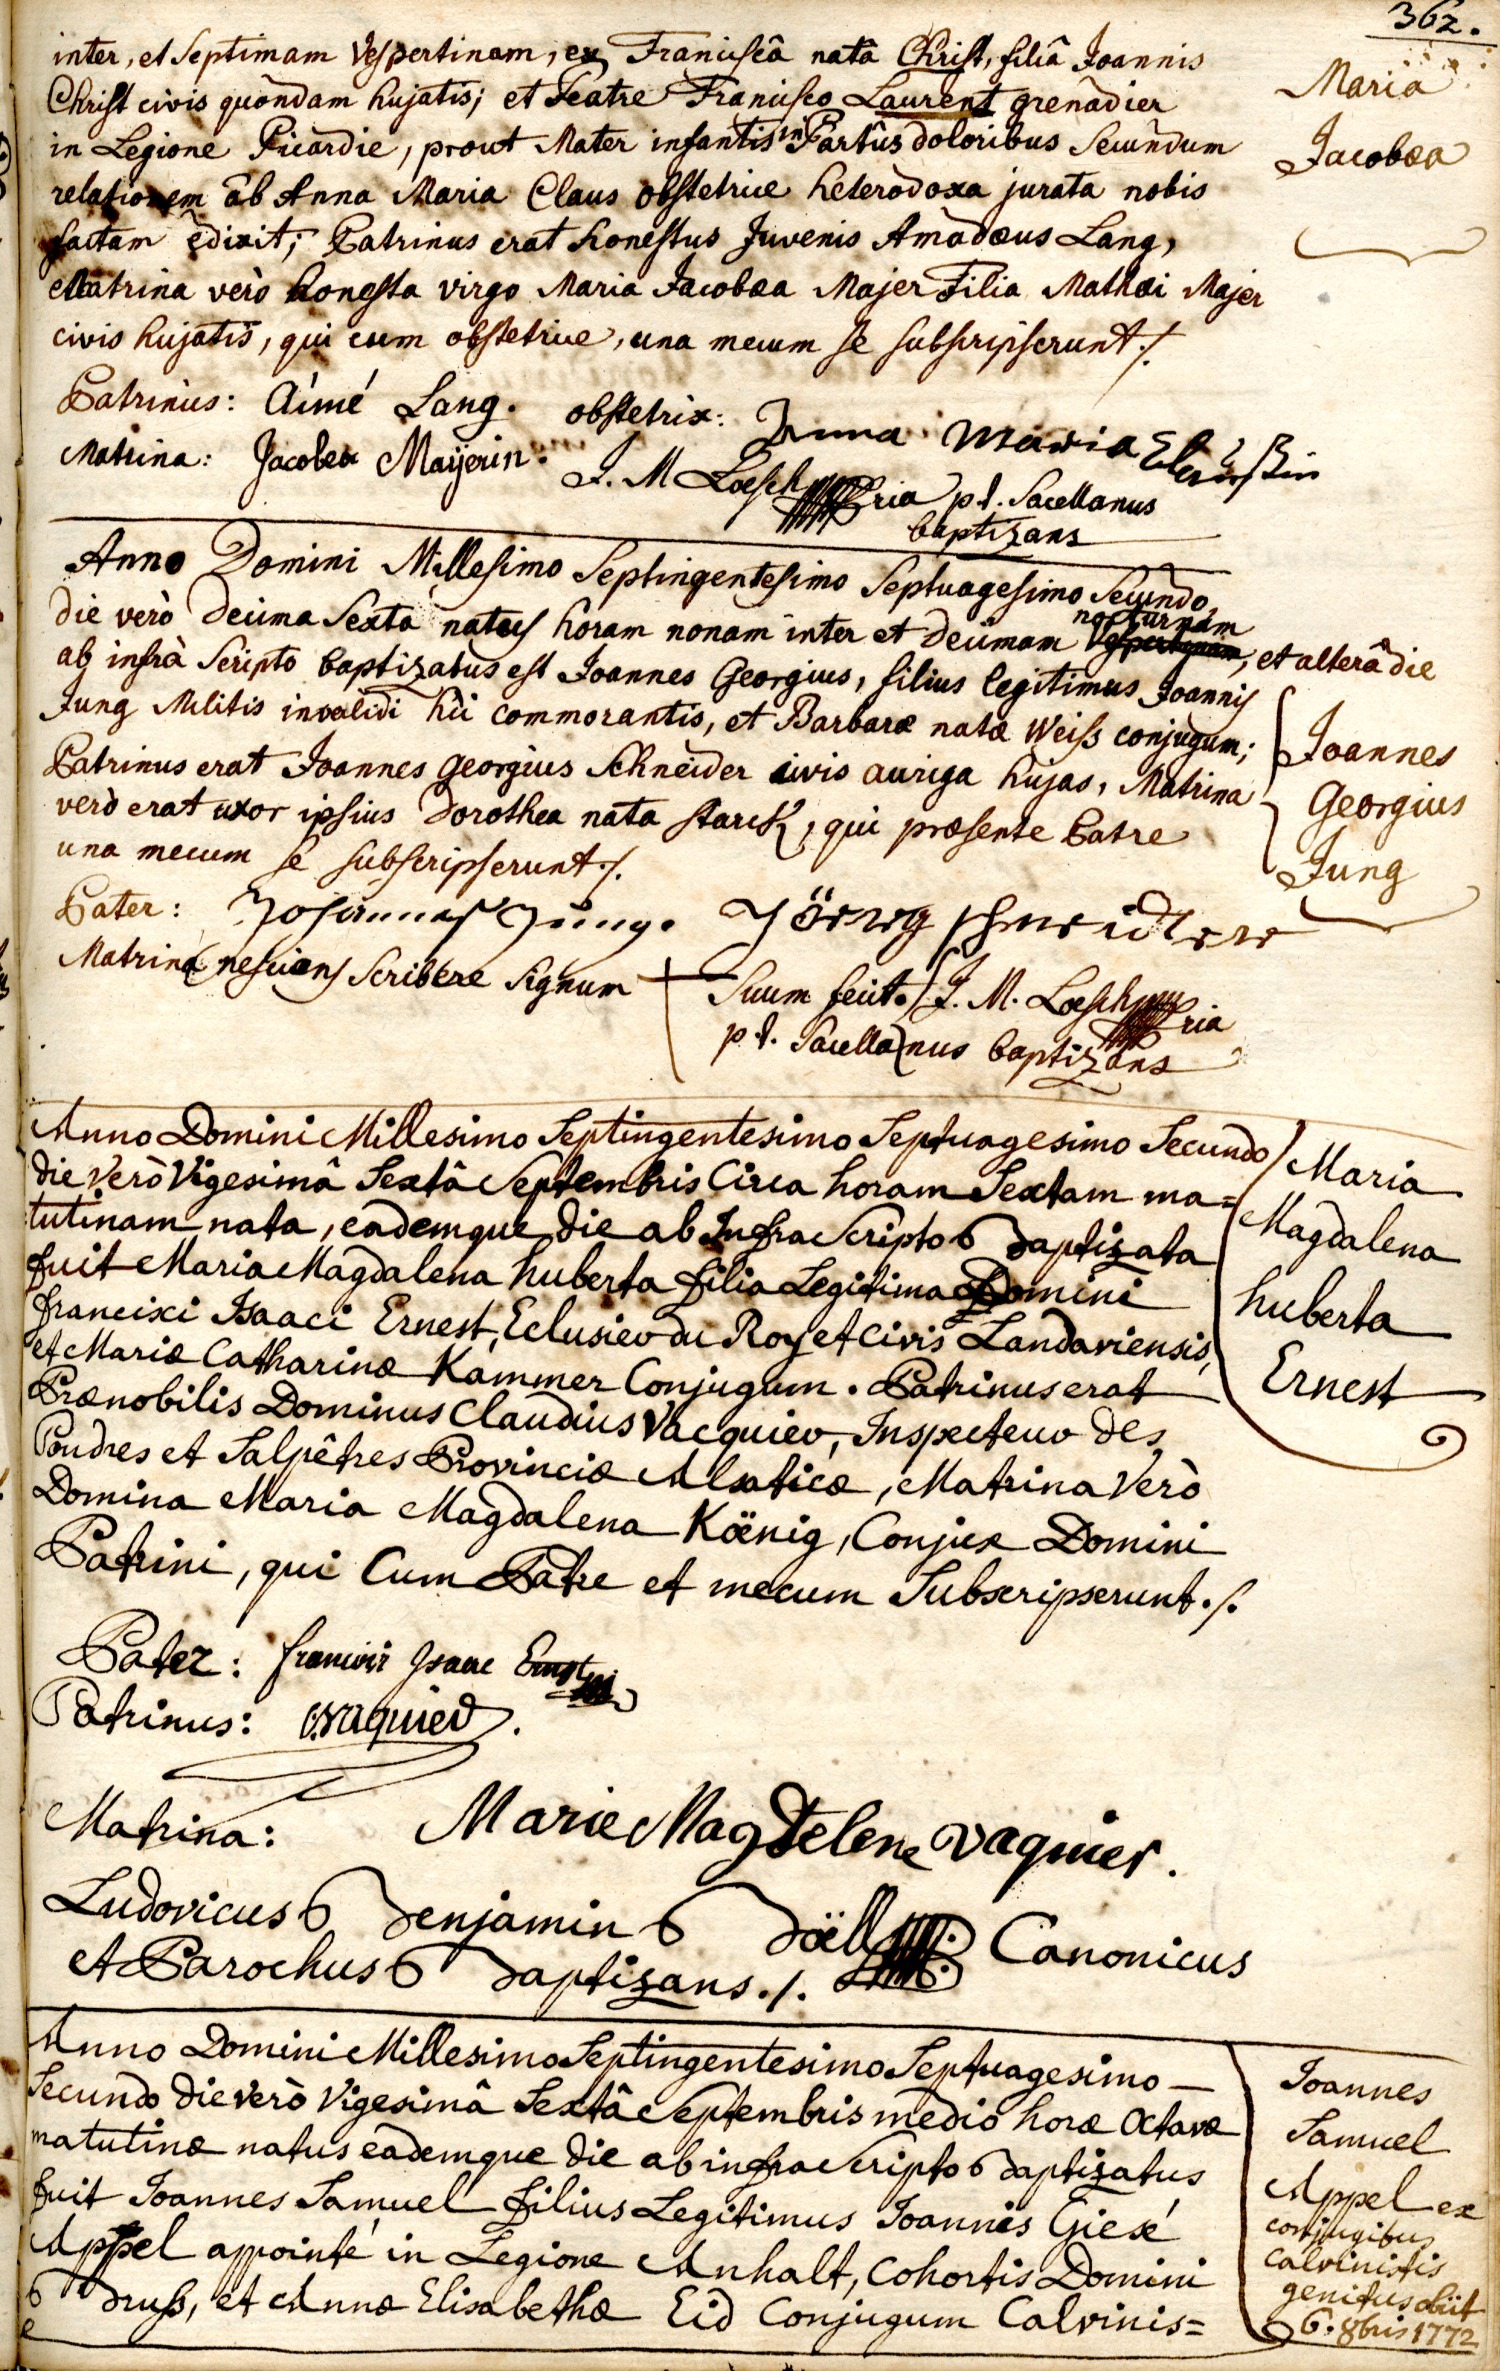 362.
inter, et Septimam Vespertinam, ex Franciscâ natâ Christ, filiâ Joannis
Christ civis quondam hujatis; et Patre Francisco Laurent grenadier
in Legione Picardie, prout Mater infantis in Partûs doloribus Secundum
relationem ab Anna Maria Claus obstetrice heterodoxa jurata nobis
factam edixit; Patrinus erat honestus Juvenis Amadæus Lang,
Matrina verò honesta virgo Maria Jacobæa Majer Filia Mathæi Majer
civis hujatis, qui cum obstetrice, una mecum se subscripserunt ./.
Maria
Jacobæa
Patrinus: Aimé Lang. obstetrix: Anna Maria
Matrina: Jacobea Mayerin. J. M Loesch ria p.t. Sacellanus
baptizans
Anno Domini Millesimo Septingentesimo Septuagesimo Secundo,
die verò decima Sexta natus horam nonam inter et decimam nocturnam Vespertinam, et alterâ die
ab infrà Scripto baptizatus est Joannes Georgius, filius legitimus Joannis
Jung Militis invalidi hîc commorantis, et Barbaræ natæ Weiss conjugum;
Patrinus erat Joannes Georgius Schneider civis auriga hujas, Matrina
verò erat uxor ipsius Dorothea nata starck, qui præsente Patre
una mecum se subscripserunt ./.
Joannes
Georgius
Jung
Pater: Johannes Jung. Jörg Schneider
Matrina nesciens scribere signum + Suum fecit ./. J. M. Loesch ria
p.t. Sacellanus baptizans
Anno Domini Millesimo Septingentesimo Septuagesimo Secundo
die Verò Vigesimâ Sextâ Septembris Circa horam Sextam ma=
tutinam nata, eâdemque die ab InfraScripto baptizata
fuit Maria Magdalena huberta filia Legitima Domini
francisci Isaaci Ernest, Eclusier du Roy et Civis Landaviensis,
et Mariæ Catharinæ Kammer Conjugum. Patrinus erat
Prænobilis Dominus Claudius Vacquier, Inspecteur des
Poudres et Salpêtres Provinciæ Alsaticæ, Matrina Verò
Domina Maria Magdalena Köenig, Conjux Domini
Patrini, qui Cum Patre et mecum Subscripserunt ./.
Maria
Magdalena
huberta
Ernest
Pater: francois Isaac Ernst
Patrinus: Vaquier.
Matrina: Marie Magdelene vaquier.
Ludovicus Benjamin Böell Canonicus
et Parochus baptizans ./.
Anno Domini Millesimo Septingentesimo Septuagesimo
Secundo die verò Vigesimâ Sextâ Septembris mediô horæ Octavæ
matutinæ natus eâdemque die ab infraScripto baptizatus
fuit Joannes Samuel filius Legitimus Joannis Giesé
Appel appointé in Legione Anhalt, Cohortis Domini
Bruss, et Annæ Elisabethæ Eid Conjugum Calvinis=
Joannes
Samuel
Appel ex
conjugibus
calvinistis
genitus obiit
6. 8bris 1772